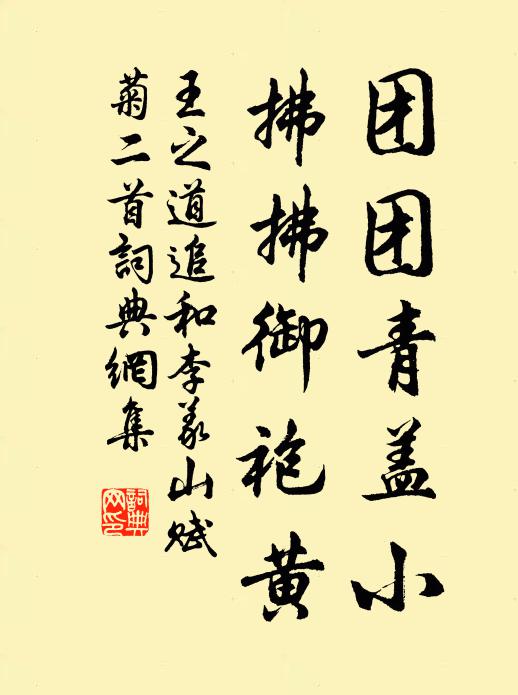 团团青盖小
拂拂御袍黄
王之道追和李义山赋
菊二首詞典網集
詞典网印